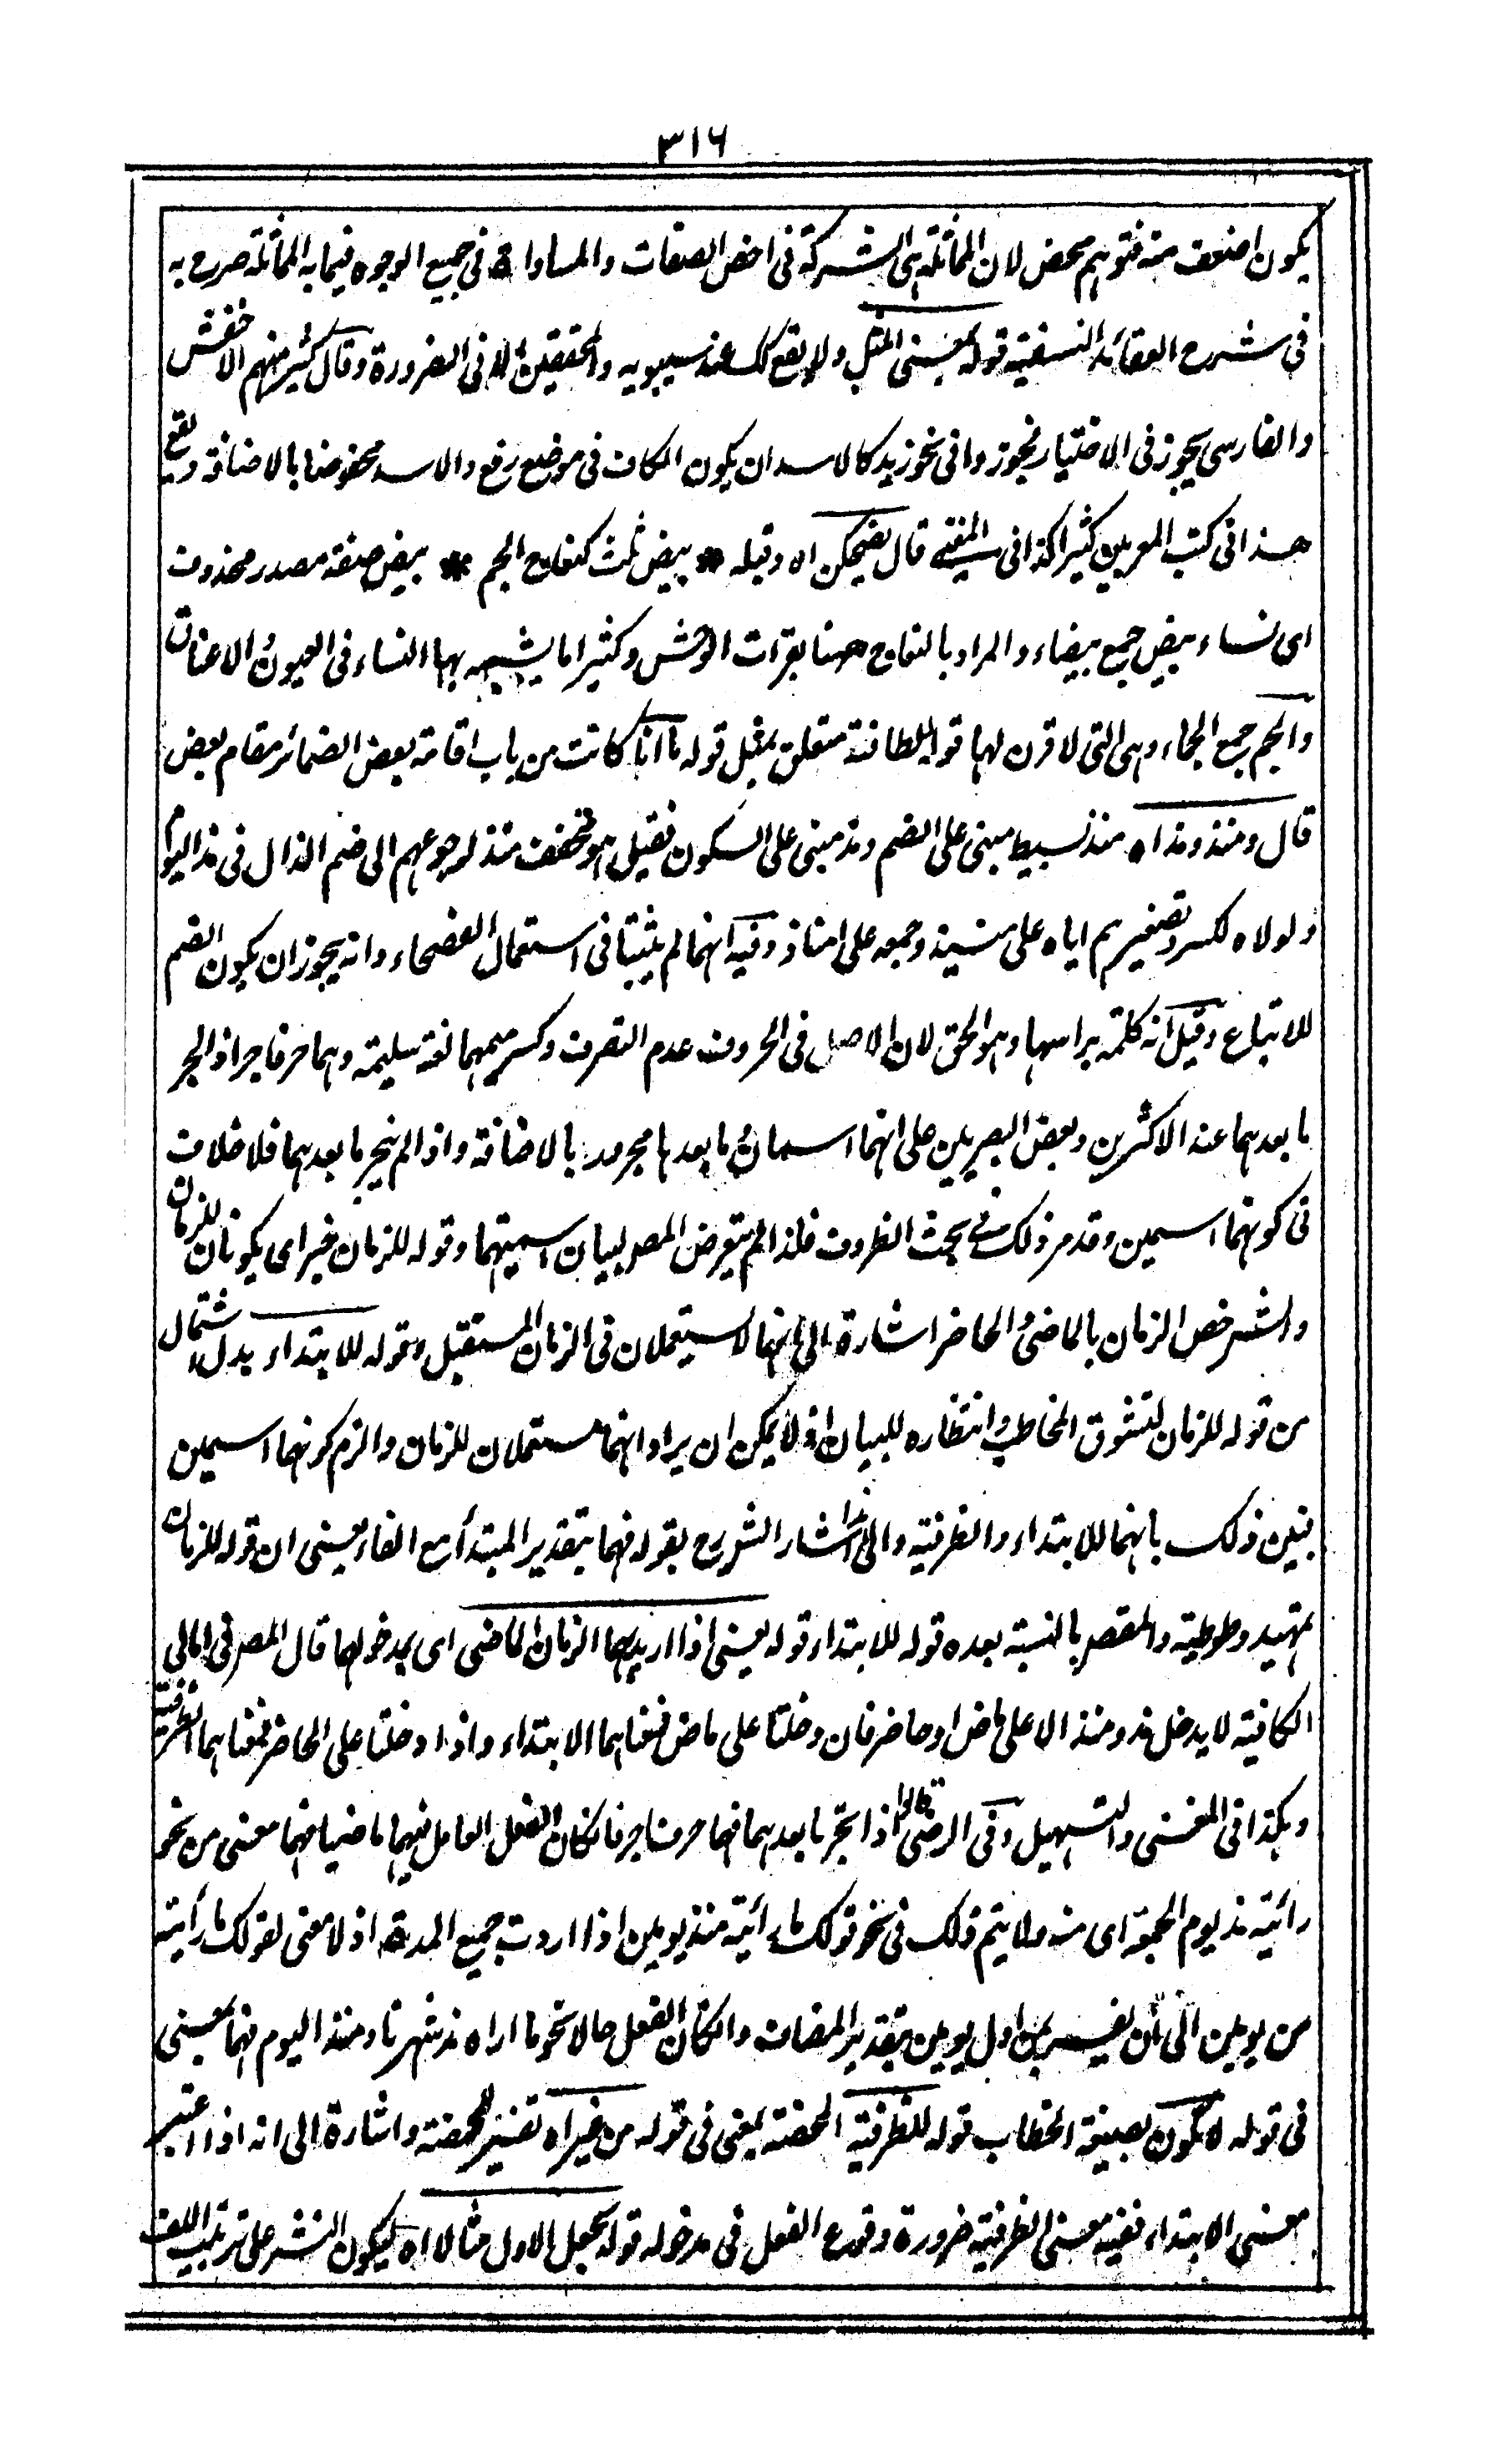 ٣١٦
يكون اضعف منه فتوهم محض لان المماثلة هى الشركة فى اخص الصفات والمساواة فى جميع الوجوه فيما به المماثلة صرح به
فى شرح العقائد النسفية قوله بمعنى المثل ولا يقع كك عند سيبويه والمحققين الا فى الضرورة وقال كثير منهم الاخفش
والفارسى يجوز فى الاختيار فجوزوا فى نحو زيد كالاسد ان يكون الكاف فى موضع رفع والاسد مخفوضا بالاضافة ويقع
هذا فى كتب المعربين كثيرا كذا فى المغنى قال يضحكن اه وقبله * بيض ثلث كنعاج الجم * بيض صفة مصدر محذوف
اى نساء بيض جمع بيضاء والمراد بالنعاج ههنا بقرات الوحش وكثيرا ما يشبه بها النساء فى العيون والاعناق
والجم جمع الجماء وهى التى لا قرن لها قوله للطافة متعلق بمثل قوله ما انا كانت من باب اقامة بعض الضمائر مقام بعض
قال ومنذ ومذ اه منذ بسيط مبنى على الضم ومذ مبنى على السكون فقيل هو مخفف منذ لرجوعهم الى ضم الذال فى مذ اليوم
ولولاه لكسر وتصغيرهم اياه على منيذ وجمعه على امناذ وفيه انهما لم يثبتا فى استعمال الفصحاء وانه يجوز ان يكون الضم
للاتباع وقيل انه كلمة براسها وهو الحق لان الاصل فى الحروف عدم التصرف وكسر ميمهما لغة سليمة وهما حرفا جر اذ الجر
ما بعدهما عند الاكثرين وبعض البصريين على انهما اسمان وما بعدها مجرور بالاضافة واذا لم ينجر ما بعدهما فلا خلاف
فى كونهما اسمين وقد مر ذلك فى بحث الظروف فلذا لم يتعرض المصر لبيان اسميتهما وقوله للزمان خبر اى يكونان للزمان
والشر خص الزمان بالماضى والحاضر اشارة الى انهما لا يستعملان فى الزمان المستقبل وقوله للابتداء بدل اشتمال
من قوله للزمان لتشوق المخاطب وانتظاره للبيان اذ لا يمكن ان يراد انهما مستعملان للزمان والزم كونهما اسمين
فبين ذلك بانهما للابتداء والظرفية والى هذا اشار الشريح بقوله فهما بتقدير المبتدأ مع الفاء يعنى ان قوله للزمان
تمهيد وطوطية والمقصر بالنسبة بعده قوله للابتداء قوله يعنى اذا اريد بهما الزمان الماضى اى بمدخولهما قال المصر فى امالى
الكافية لا يدخل مذ ومنذ الا على ماض او حاضر فان دخلتا على ماض فمعناهما الابتداء واذا دخلتا على الحاضر فمعناهما الظرفية
وهكذا فى المغنى والتسهيل وفى الرضى قالوا اذا انجر ما بعدهما فهما حرفا جر فان كان الفعل العامل فيهما ماضيا فهما معنى من نحو
رأيته مذ يوم الجمعة اى منه ولا يتم ذلك فى نحو قولك ما رأيته منذ يومين اذا اردت جميع المدة اذ لا معنى لقولك ما رأيته
من يومين الى الان يفسر بمن اول يومين بتقدير المضاف وان كان الفعل حالا نحو ما اراه مذ شهرنا ومنذ اليوم فهما بمعنى
فى قوله لا تكون بصيغة الخطاب قوله للظرفية المحضة يعنى فى قوله من غير اه تفسير للمحضة واشارة الى انه اذا اعتبر
معنى الابتداء ففيه معنى الظرفية ضرورة وقوع الفعل فى مدخوله قوله يجعل الاول مثالا اه ليكون النشر على ترتيب اللف